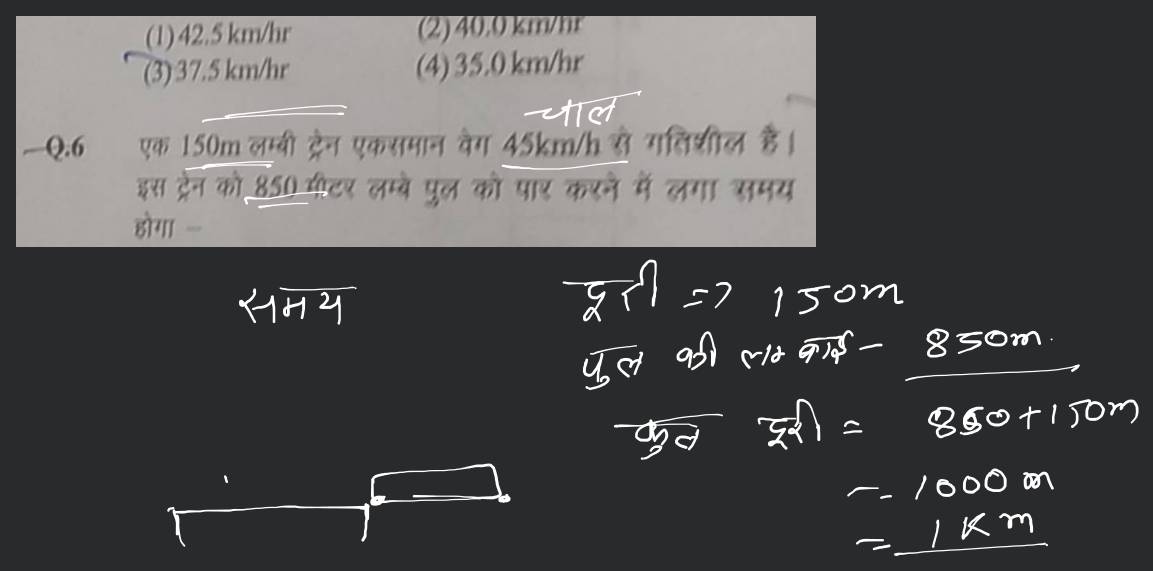 (1) 42.5 km/hr (2) 40.0 km/hr
(3) 37.5 km/hr (4) 35.0 km/hr
चाल
Q.6 एक 150m लम्बी ट्रेन एकसमान वेग 45km/h से गतिशील है।
इस ट्रेन को 850 मीटर लम्बे पुल को पार करने में लगा समय
होगा –
समय
दूरी => 150m
पुल की लम्बाई – 850m.
कुल दूरी = 850+150m
= 1000 m
= 1 Km